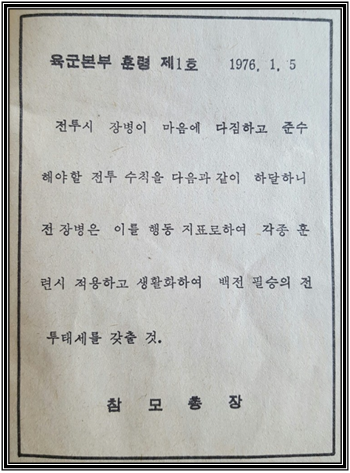 육군본부 훈령 제1호 1976. 1. 5
전투시 장병이 마음에 다짐하고 준수
해야할 전투 수칙을 다음과 같이 하달하니
전 장병은 이를 행동 지표로하여 각종 훈
련시 적용하고 생활화하여 백전 필승의 전
투태세를 갖출 것.
참 모 총 장